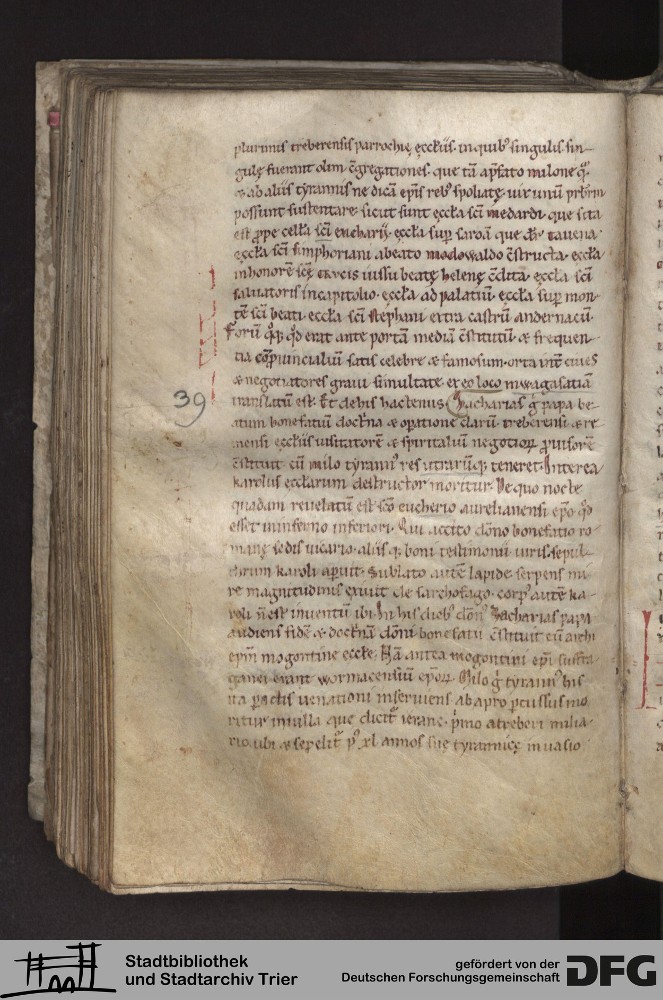 plurimis treberensis parrochie ęccl̄iis. in quibꝰ singulis sin-
gulę fuerant olim c̄gregationes. que tā ap̄fato milone q̄ꝫ
& ab aliis tyrannis ne dicā ep̄is rebꝰ spoliatę. vix unū pr̄bm̄
possunt sustentare. sicut sunt ęccl̄a sc̄i medardi. que sita
est ꝓpe cellā sc̄i eucharii. ęccl̄a suꝑ saroam que d̄r tauena
ęccl̄a sc̄i simphoriani abeato modowaldo c̄structa. ęccl̄a
inhonorē sc̄ę crucis iussu beatę helenę c̄dita. eccl̄a sc̄i
saluatoris incapitolio. eccl̄a ad palatiū. eccl̄a suꝑ mon-
tē sc̄i beati. eccl̄a sc̄i stephani extra castrū andernacū.
Forū q̄qꝫ qd̄ erat ante portā mediā c̄stitutū & frequen-
tia cōprouincialiū satis celebre & famosum. orta int̄ ciues
& negotiatores graui simultate. ex eo loco inwagasatiā
translatū est. Et dehis hactenus. Zacharias g̊ papa be-
atum bonefatiū doctrina & oꝑatione clarū. treberensi & re-
mensi ęccl̄iis uisitatorē & spiritaliū negotioꝝ ꝓuisorē
c̄stituit cū milo tyrannꝰ res utrarūqꝫ teneret. Interea
karolus ęccl̄arum destructor moritur. De quo nocte
quadam reuelatū est sc̄o eucherio aurelianensi ep̄o. qd̄
esset ininferno inferiori. Qui accito dōno bonefatio ro-
manę sedis uicario. aliis qꝫ boni testimonii uiris. sepul-
chrum karoli aꝑuit. Sublato autē lapide. serpens mi-
re magnitudinis exiuit de sarchofago. corpꝰ autē ka-
roli n̄ est inuentū ibi. In his diebꝰ dōnꝰ Zacharias papa
audiens fidē & doctnā dōni bonefatii c̄stituit eū archi
ep̄m mogontine eccl̄e. Nā antea mogontini ep̄i suffra-
ganei erant wormacensiū ep̄oꝝ. Milo g̊ tyrannꝰ his
ita ꝑactis uenationi inseruiens ab apro ꝑcussus mo-
ritur inuilla que dicit̄ ierane. p̄mo atreberi milia-
rio. ubi & sepelit̄ p̊ xl annos suę tyrannicę inuasio
39
Stadtbibliothek
und Stadtarchiv Trier
gefördert von der
Deutschen Forschungsgemeinschaft
DFG